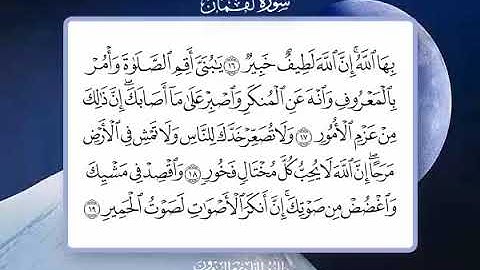 سورة لقمان
بِهَا ٱللَّهُ ۚ إِنَّ ٱللَّهَ لَطِيفٌ خَبِيرٌ ١٦ يَٰبُنَىَّ أَقِمِ ٱلصَّلَوٰةَ وَأْمُرْ
بِٱلْمَعْرُوفِ وَٱنْهَ عَنِ ٱلْمُنكَرِ وَٱصْبِرْ عَلَىٰ مَآ أَصَابَكَ ۖ إِنَّ ذَٰلِكَ
مِنْ عَزْمِ ٱلْأُمُورِ ١٧ وَلَا تُصَعِّرْ خَدَّكَ لِلنَّاسِ وَلَا تَمْشِ فِى ٱلْأَرْضِ
مَرَحًا ۖ إِنَّ ٱللَّهَ لَا يُحِبُّ كُلَّ مُخْتَالٍ فَخُورٍ ١٨ وَٱقْصِدْ فِى مَشْيِكَ
وَٱغْضُضْ مِن صَوْتِكَ ۚ إِنَّ أَنكَرَ ٱلْأَصْوَٰتِ لَصَوْتُ ٱلْحَمِيرِ ١٩